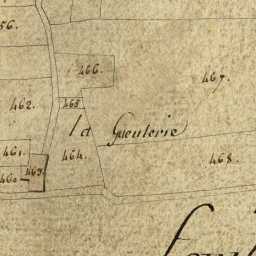 56.
466.
467.
462.
465
la Gueulerie
461.
464.
468.
460
463.